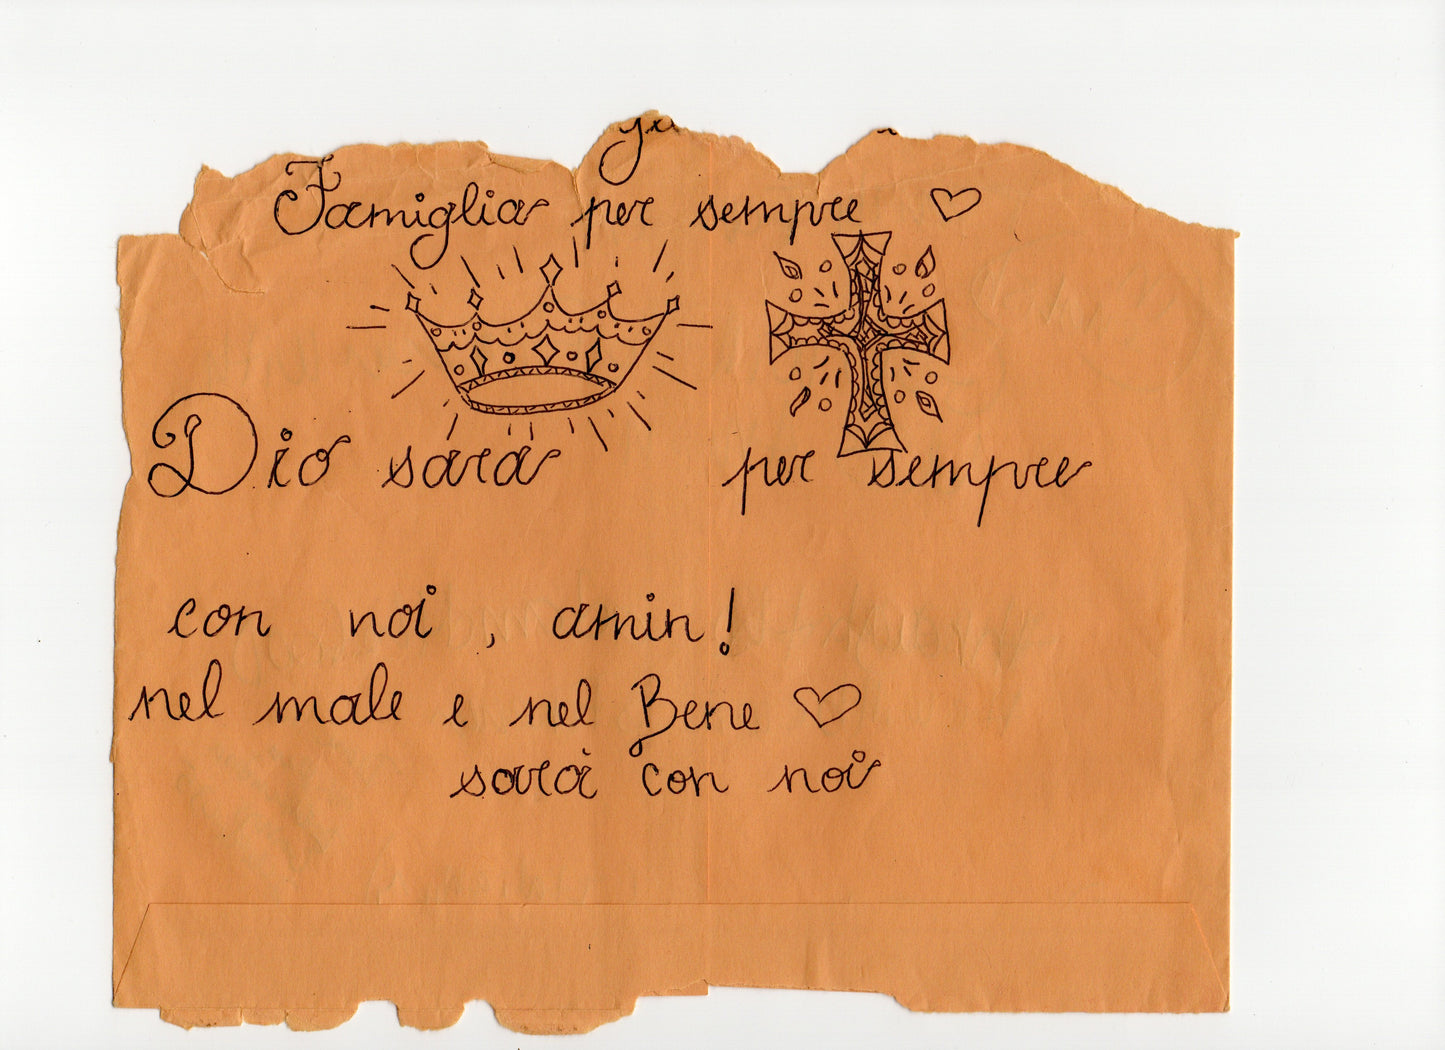 Famiglia per sempre ♡
Dio sara per sempre
con noi, amin!
nel male e nel Bene ♡
sarà con noi